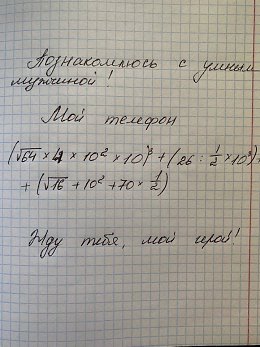 Познакомлюсь с умным
мужчиной!
Мой телефон
(√64 × 4 × 10² × 10)³ + (26 : 1/2 × 10³) +
+ (√16 + 10² + 70 × 1/2)
Жду тебя, мой герой!